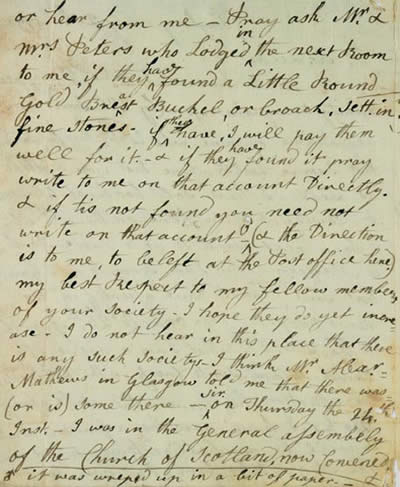 or hear from me – Pray ask Mr. &
Mrs Peters who Lodged in the next Room
to me, if they had found a Little Round
Gold Breast Buckel, or broach, sett in
fine stones – if they have, I will pay them
well for it. – & if they have found it pray
write to me on that account Directly.
& if tis not found you need not
write on that account – (& the Direction
is to me, to be left at the Post office here)
my best Respect to my fellow members
of your Society – I hope they do yet incre-
ase – I do not hear in this place that there
is any such societys – I think Mr. Alexr.
Mathews in Glasgow told me that there was
(or is) some there – Sir, on Thursday the 24th
Inst. – I was in the General assembely
of the Church of Scotland, now Convened,
it was wreped up in a bit of paper –